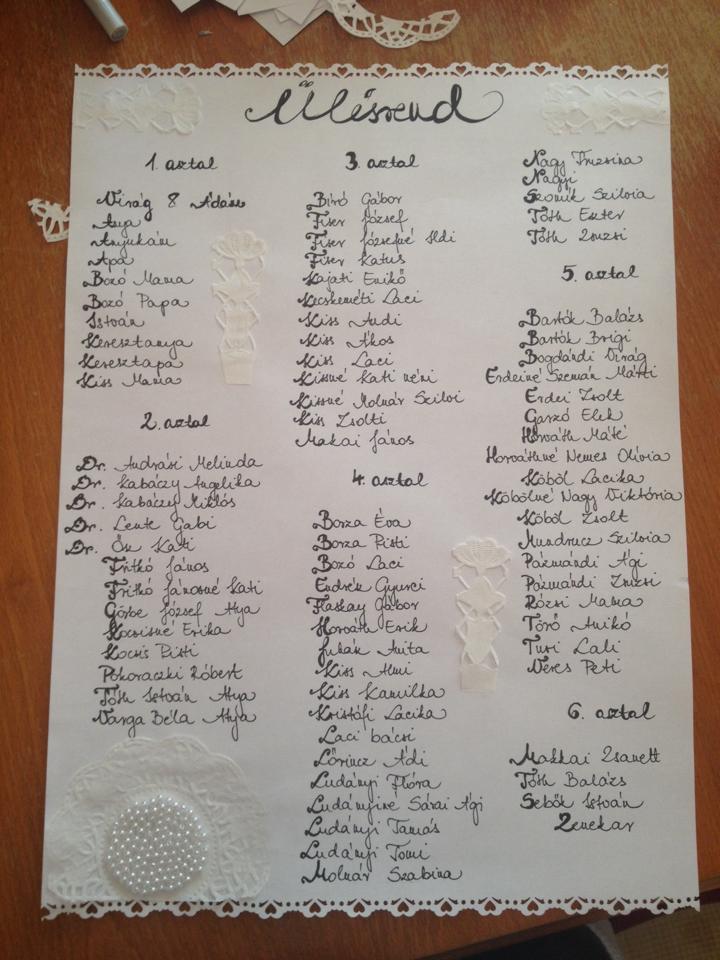 Ülésrend
1. asztal
Virág & Ádám
Anya
Anyukám
Apa
Bozó Mama
Bozó Papa
István
Keresztanya
Keresztapa
Kiss Mama
2. asztal
Dr. Andrási Melinda
Dr. Kabáczy Angelika
Dr. Kabáczy Miklós
Dr. Lente Gabi
Dr. Őri Kati
Fritkó János
Fritkó Jánosné Kati
Görbe József Atya
Kocsisné Erika
Kocsis Pisti
Pokoraczki Róbert
Tóth István Atya
Varga Béla Atya
3. asztal
Bíró Gábor
Fiser József
Fiser Józsefné Ildi
Fiser Katus
Kajati Enikő
Kecskeméti Laci
Kiss Andi
Kiss Ákos
Kiss Laci
Kissné Kati néni
Kissné Molnár Szilvi
Kiss Zsolti
Makai János
4. asztal
Borza Éva
Borza Pisti
Bozó Laci
Endrék Gyurci
Flaskay Gábor
Horváth Erik
Juhák Anita
Kiss Almi
Kiss Kamilka
Kristófi Lacika
Laci bácsi
Lőrincz Ádi
Ludányi Flóra
Ludányiné Sárai Ági
Ludányi Tamás
Ludányi Tomi
Molnár Szabina
Nagy Fruzsina
Nagyi
Szomik Szilvia
Tóth Eszter
Tóth Zsuzsi
5. asztal
Bartók Balázs
Bartók Brigi
Bogdándi Virág
Erdeiné Szemán Márti
Erdei Zsolt
Garzó Elek
Horváth Máté
Horváthné Nemes Olívia
Köböl Lacika
Köbölné Nagy Viktória
Köböl Zsolt
Mundrucz Szilvia
Pázmándi Ági
Pázmándi Zsuzsi
Rózsi Mama
Törő Anikó
Turi Lali
Veres Peti
6. asztal
Makkai Zsanett
Tóth Balázs
Sebők István
Zenekar